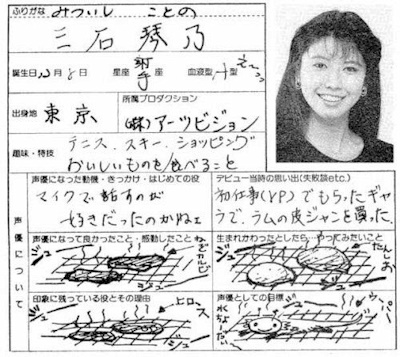 ふりがな みついし ことの
三石琴乃
誕生日12月8日 星座 射手 血液型 A 型
出身地 東京
所属プロダクション
(株)アーツビジョン
趣味・特技
テニス、スキー、ショッピング
おいしいものを食べること
声優について
声優になった動機・きっかけ・はじめての役
マイクで、話すのが
好きだったのかねェ
デビュー当時の思い出(失敗談etc.)
初仕事(VP)でもらったギャ
ラで、ラムの皮ジャンを買った
声優になって良かったこと・感動したこと
ジュー
ねぎカルビ
ジュー
生まれかわったとしたら、やってみたいこと
ジュー
たんしお
印象に残っている役とその理由
ジュー
ヒロース
ジュー
声優としての目標
ジュー